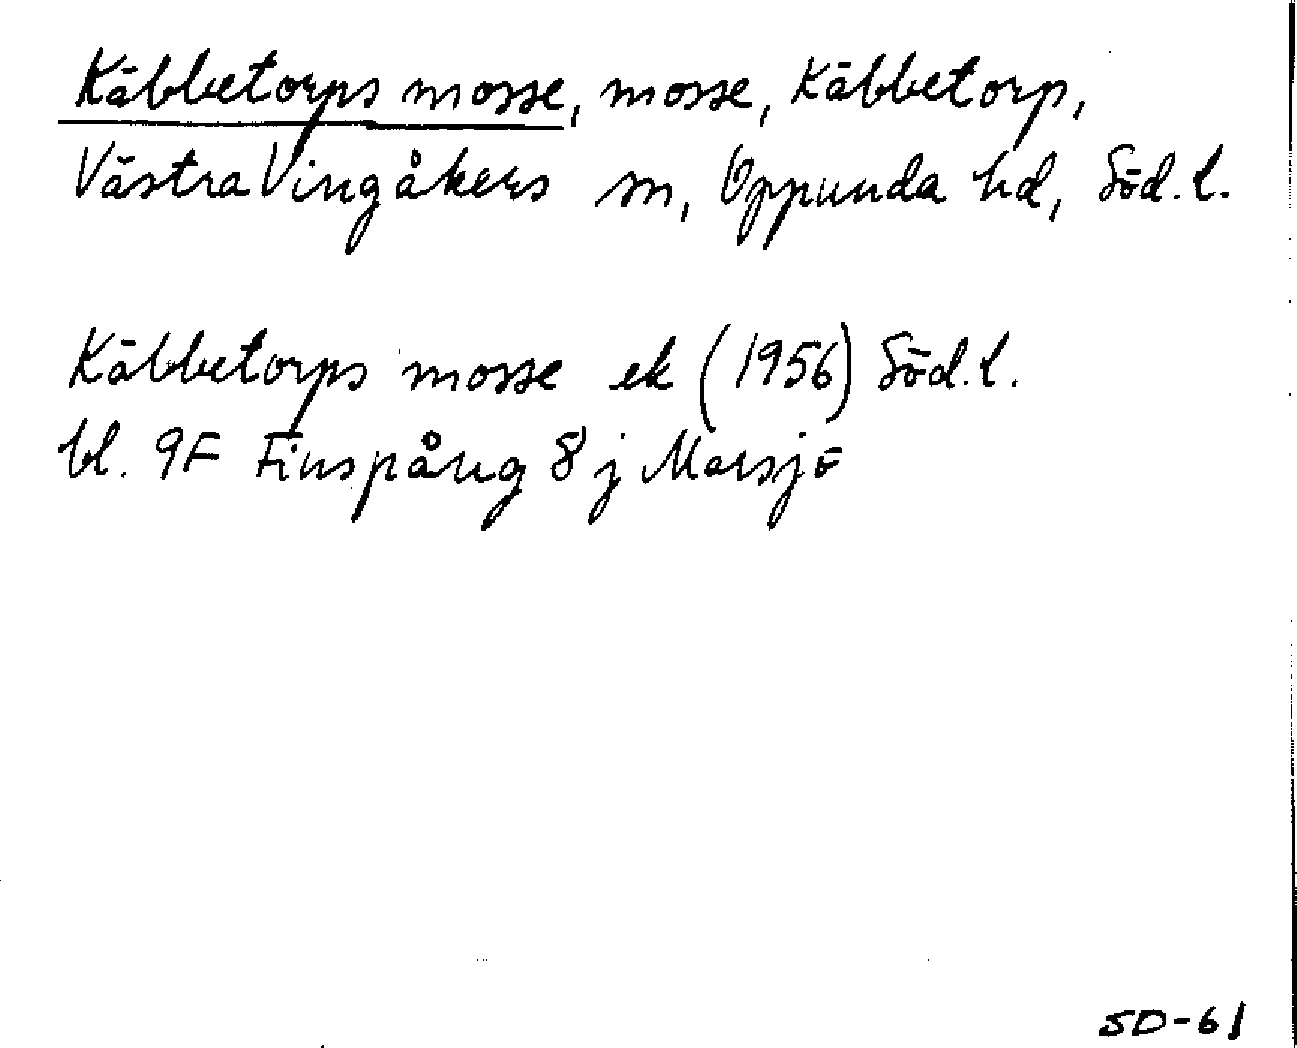 Käbbetorps mosse, mosse, Käbbetorp,
Västra Vingåkers sn, Oppunda hd, Söd. l.
Käbbetorps mosse ek (1956) Söd. l.
bl. 9F Finspång 8 j Marsjö
SD-61